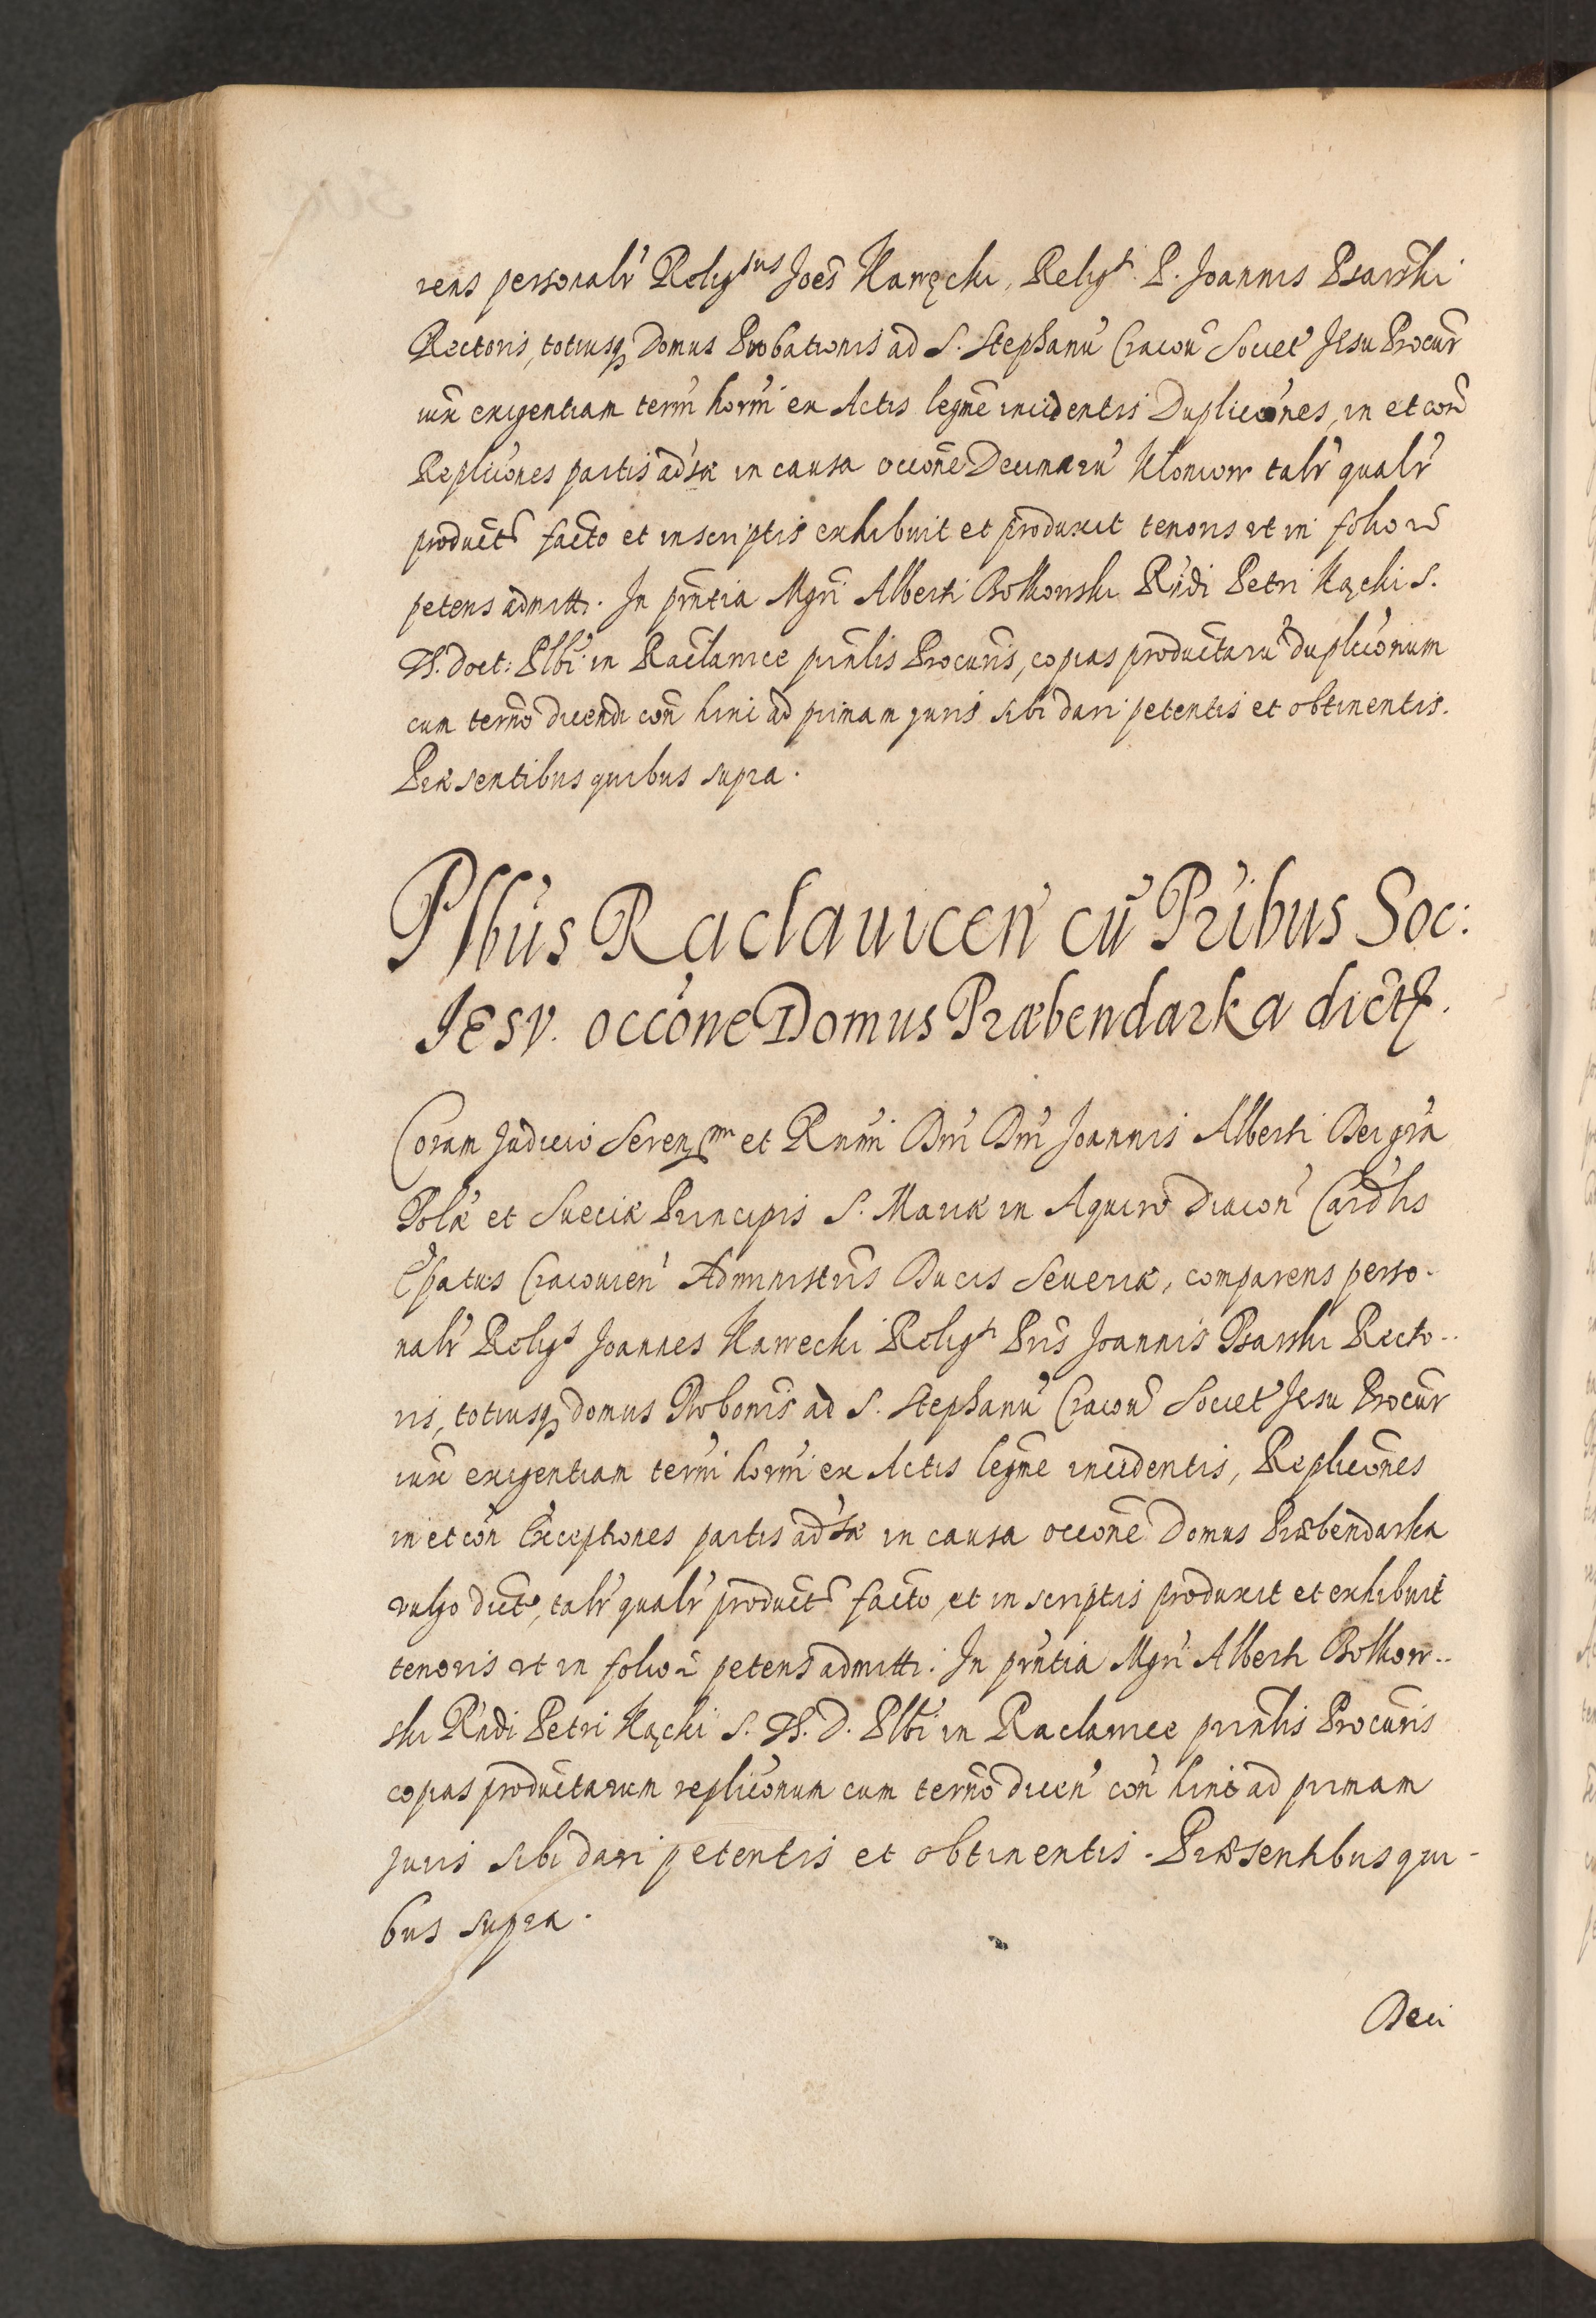 rens personalr̃ Religsus Joes̃ Kawęcki, Religi P. Joannis Psarski
Rectoris, totiusq3 Domus Probationis ad S. Stephanũ Cracoũ Societ̃ Jesu Procur̃
iux̃ exigentiam term̃ horñi ex Actis legm̃e incidentis Duplicões, in et con̄
Replicões partis ad̃sæ in causa occõne Decimarũ Kłoniow talr̃ qualr̃
product̃ facto et in scriptis exhibuit et produxit tenoris ut in folio
petens admitti. In pñtia Mgr̃i Alberti Bolkowski Rñdi Petri Kącki S.
Th. Doct: Plb̃i in Raclawice prinlis Procuris, copias productarũ duplicõnium
cum term̃o dicendi con̄ hinc ad primam juris sibi dari petentis et obtinentis.
Præsentibus quibus supra.
Plbũs Raclauicen̄ cũ Pr̃ibus Soc:
Jesv. occõne Domus Præbendarka dictę.
Coram Judicio Serenmi et Rm̃i Dñi Dñi Joannis Alberti Dei gr̃a
Polæ et Sueciæ Principis S. Mariæ in Aquiro Diacon̄ Cardlis
Ep̃atus Cracouien̄ Administris Ducis Seueriæ, comparens perso-
nalr̃ Religs Joannes Kawecki Religi Pris̃ Joannis Psarski Recto-
ris, totiusq3 domus Probonis̃ ad S. Stephanũ Cracoũ Societ̃ Jesu Procur̃
iux̃ exigentiam term̃i horñi ex Actis legm̃e incidentis, Replicões
in et con̄ Exceptiones partis ad̃sæ in causa occõne Domus Præbendarka
vulgo dict, talr̃ qualr̃ product̃ facto, et in scriptis produxit et exhibuit
tenoris ut in folio 2 petens admitti. In pñtia Mgr̃i Alberti Bolkow-
ski Rñdi Petri Kącki S. Th. D. Plb̃i in Raclawice prinlis Procuris
copias productarum replicõnum cum term̃o dicen̄ con̄ hinc ad primam
juris sibi dari petentis et obtinentis. Præsentibus qui-
bus supra.
Deci